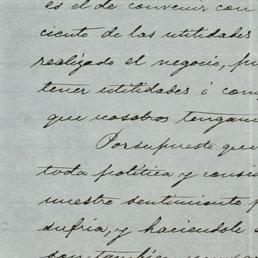 es el de convenir con
ciento de las utilidades
realizado el negocio, pu
tener utilidades ó com
que vosotros tengam
Por supuesto que
toda política y consi
nuestro sentimiento p
sufría, y haciendole